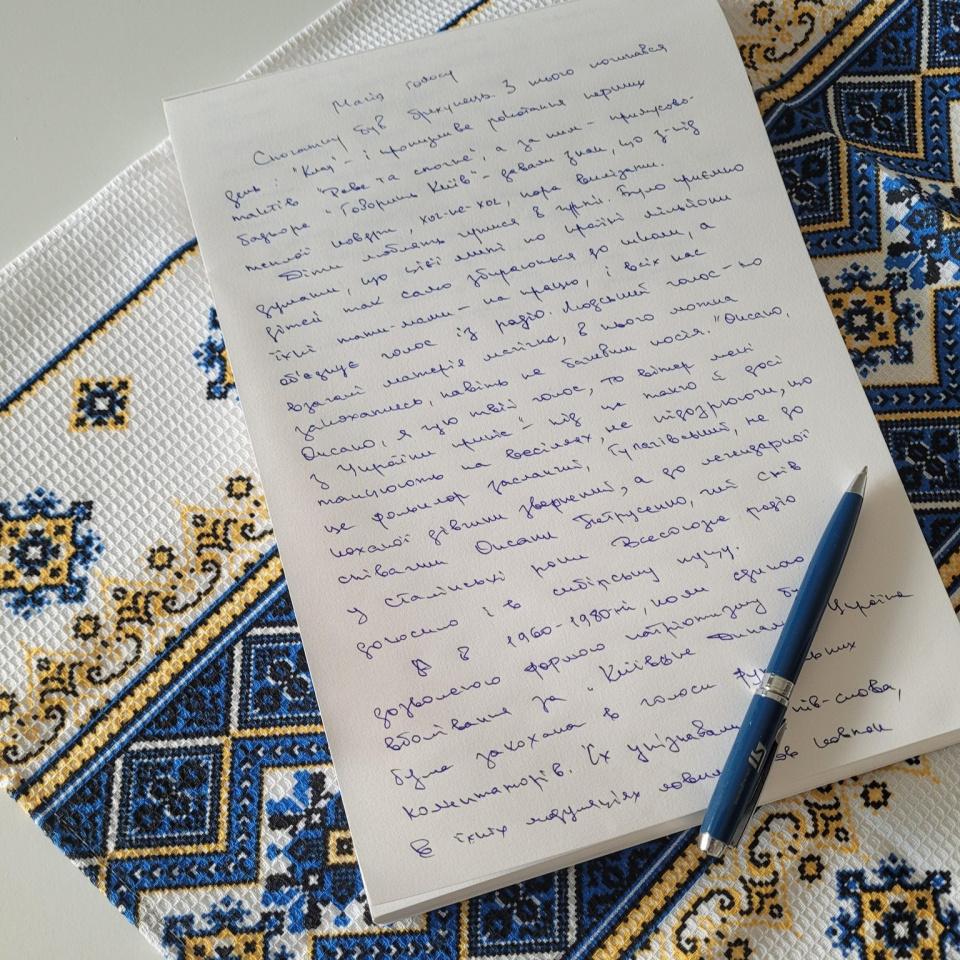 Магія голосу
Спочатку був брехунець. З нього починався
день: "Клац" – і пронизливе рокотання перших
тактів "Реве та стогне", а за ним – примусово-
бадьоре "Говорить Київ" – давали знак, що з-під
теплої ковдри, хоч-не-хоч, пора вилізати.
Діти люблять гуртися в гурти. Було приємно
думати, що цієї миті по країні мільйони
дітей так само збираються до школи, а
їхні тати-мами – на працю, і всіх нас
об'єднує голос із радіо. Людський голос – то
взагалі матерія магічна, в нього можна
закохатись, навіть не бачивши носія. "Оксано,
Оксано, я чую твій голос, то вітер мені
з України приніс" – під це танго й досі
танцюють на весіллях, не підозрюючи, що
це фольклор засланчий, ґулаґівський, не до
коханої дівчини звернений, а до легендарної
співачки Оксани Петрусенко, чий спів
у сталінські роки Всесоюзне радіо
доносило і в сибірську пущу.
А в 1960-1980-ті, коли єдиною
дозволеною формою патріотизму було
вболівання за "Київське Динамо", Україна
була закохана в голоси футбольних
коментаторів. Їх упізнавали з пів-слова,
в їхніх модуляціях ловили кожен